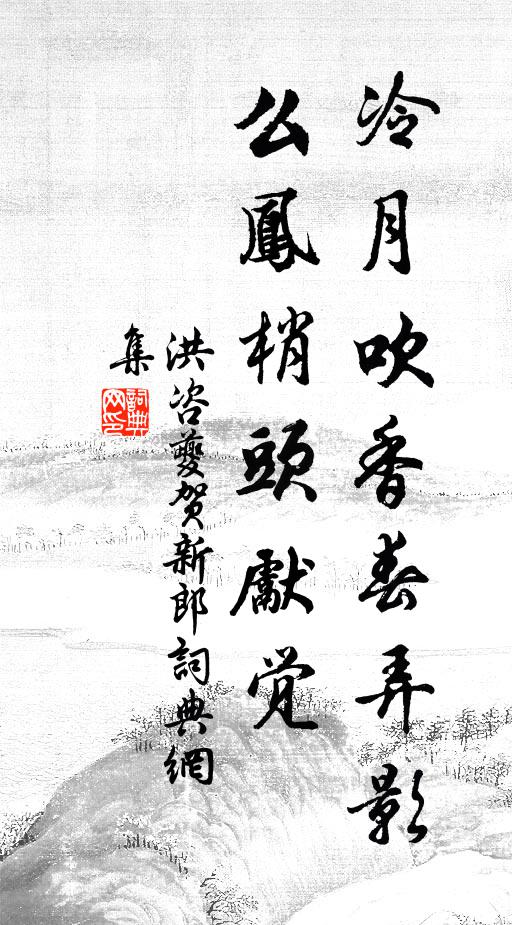 冷月吹香春弄影
么鳳梢頭獻觉
洪咨夔賀新郎詞典網
集
詞典網印